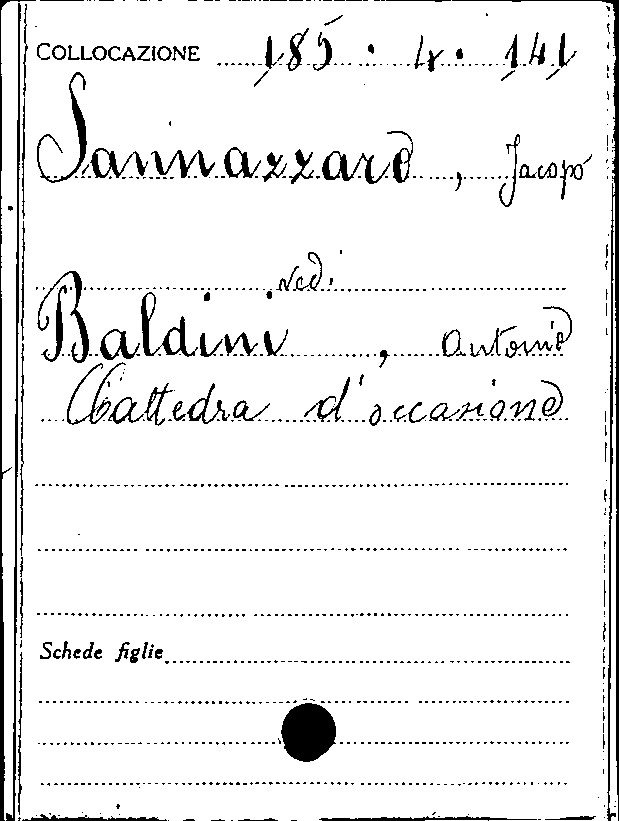 COLLOCAZIONE 185.4.141
Sannazzaro, Jacopo
vedi
Baldini, Antonio
Cattedra d'occasione
Schede figlie